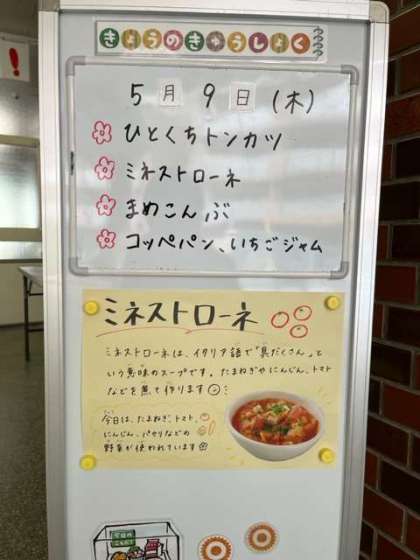 きょうのきゅうしょく
5月9日(木)
ひとくちトンカツ
ミネストローネ
まめこんぶ
コッペパン、いちごジャム
ミネストローネ
ミネストローネは、イタリア語で「具だくさん」と
いう意味のスープです。たまねぎやにんじん、トマト
などを煮て作ります
今日は、たまねぎ、トマト、
にんじん、パセリなどの
野菜が使われています